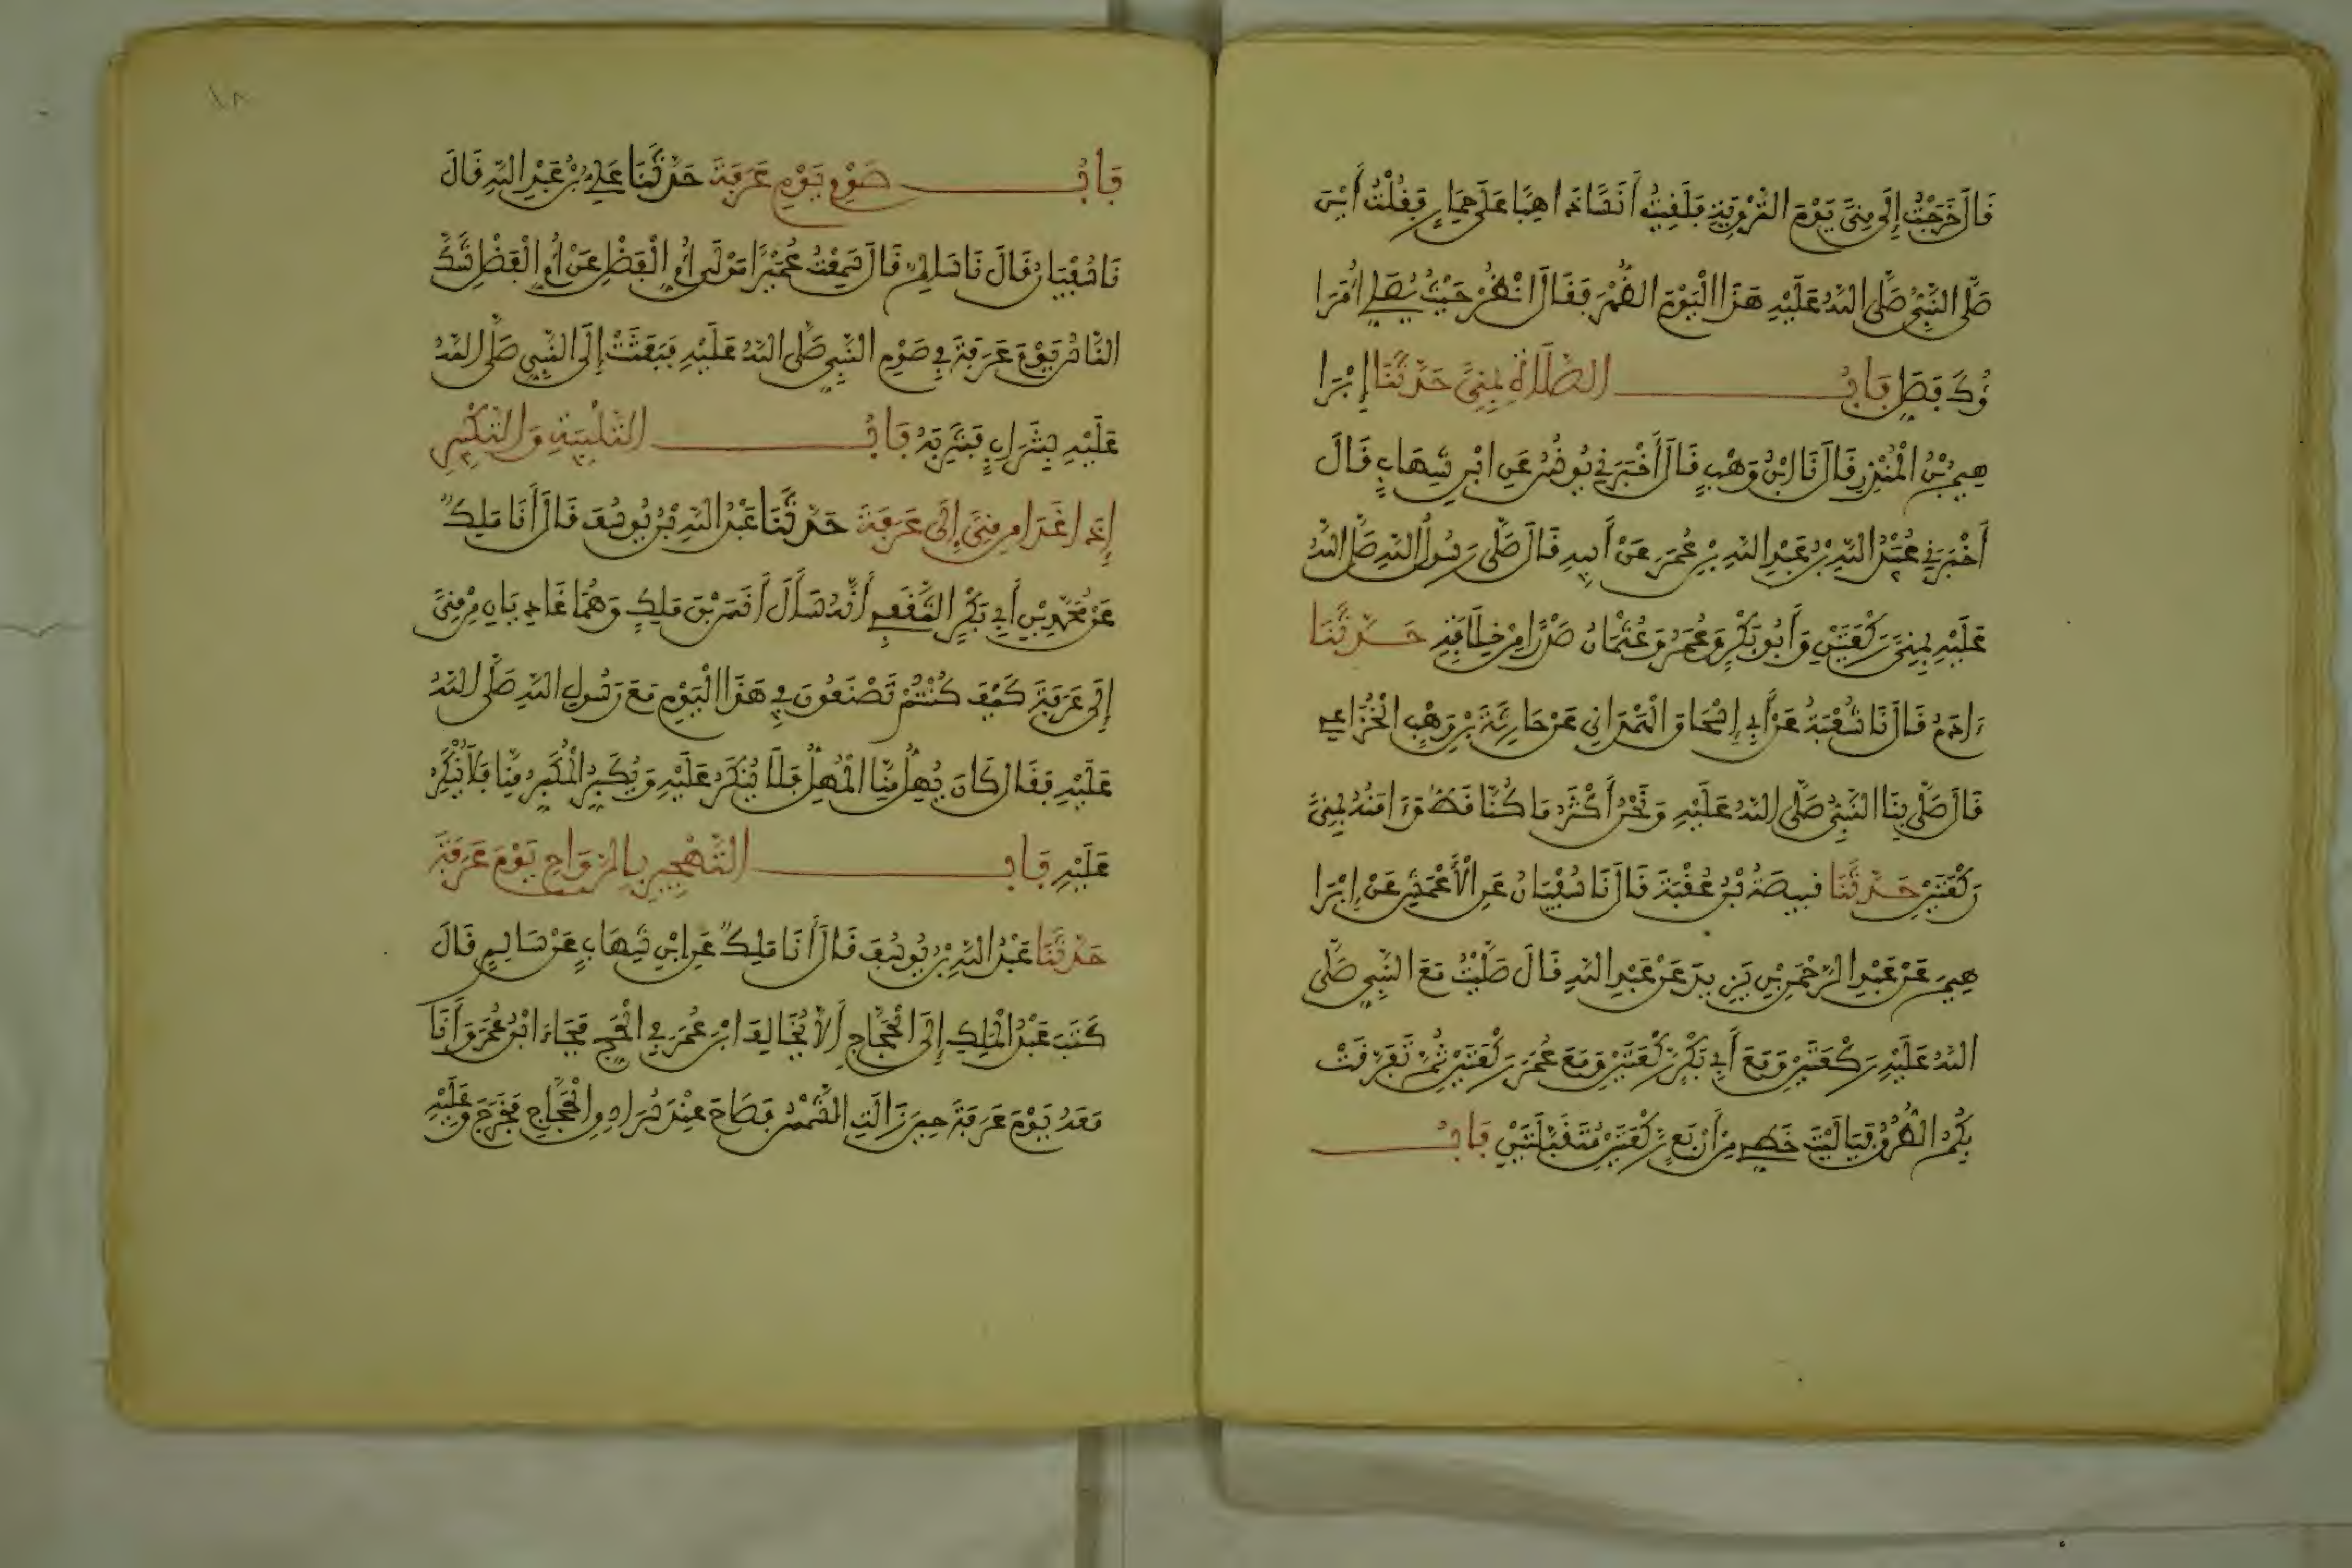 قَالَ خَرَجْتُ إِلَى مِنًى يَوْمَ التَّرْوِيَةِ فَلَقِيتُ أَنَسًا ذَاهِبًا عَلَى حِمَارٍ فَقُلْتُ أَيْنَ
صَلَّى النَّبِيُّ صَلَّى اللَّهُ عَلَيْهِ هَذَا الْيَوْمَ الظُّهْرَ فَقَالَ انْظُرْ حَيْثُ يُصَلِّي أُمَرَا
ؤُكَ فَصَلِّ بَابُ الصَّلَاةِ بِمِنًى حَدَّثَنَا إِبْرَا
هِيمُ بْنُ الْمُنْذِرِ قَالَ نَا ابْنُ وَهْبٍ قَالَ أَخْبَرَنِي يُونُسُ عَنِ ابْنِ شِهَابٍ قَالَ
أَخْبَرَنِي عُبَيْدُ اللَّهِ بْنُ عَبْدِ اللَّهِ بْنِ عُمَرَ عَنْ أَبِيهِ قَالَ صَلَّى رَسُولُ اللَّهِ صَلَّى اللَّهُ
عَلَيْهِ بِمِنًى رَكْعَتَيْنِ وَأَبُو بَكْرٍ وَعُمَرُ وَعُثْمَانُ صَدْرًا مِنْ خِلَافَتِهِ حَدَّثَنَا
ءَادَمُ قَالَ نَا شُعْبَةُ عَنْ أَبِي إِسْحَاقَ الْهَمْدَانِي عَنْ حَارِثَةَ بْنِ وَهْبٍ الْخُزَاعِي
قَالَ صَلَّى بِنَا النَّبِيُّ صَلَّى اللَّهُ عَلَيْهِ وَنَحْنُ أَكْثَرُ مَا كُنَّا قَطُّ وَءَامَنُهُ بِمِنًى
رَكْعَتَيْنِ حَدَّثَنَا قَبِيصَةُ بْنُ عُقْبَةَ قَالَ نَا سُفْيَانُ عَنِ الْأَعْمَشِ عَنْ إِبْرَا
هِيمَ عَنْ عَبْدِ الرَّحْمَنِ بْنِ يَزِيدَ عَنْ عَبْدِ اللَّهِ قَالَ صَلَّيْتُ مَعَ النَّبِيِّ صَلَّى
اللَّهُ عَلَيْهِ رَكْعَتَيْنِ وَمَعَ أَبِي بَكْرٍ رَكْعَتَيْنِ وَمَعَ عُمَرَ رَكْعَتَيْنِ ثُمَّ تَفَرَّقَتْ
بِكُمُ الطُّرُقُ فَيَا لَيْتَ حَظِّي مِنْ أَرْبَعٍ رَكْعَتَيْنِ مُتَقَبَّلَتَيْنِ بَابُ
١٨
بَابُ صَوْمِ يَوْمِ عَرَفَةَ حَدَّثَنَا عَلِيُّ بْنُ عَبْدِ اللَّهِ قَالَ
نَا سُفْيَانُ قَالَ نَا سَالِمٌ قَالَ سَمِعْتُ عُمَيْرًا مَوْلَى أُمِّ الْفَضْلِ عَنْ أُمِّ الْفَضْلِ شَكَّ
النَّاسُ يَوْمَ عَرَفَةَ فِي صَوْمِ النَّبِيِّ صَلَّى اللَّهُ عَلَيْهِ فَبَعَثَتْ إِلَى النَّبِيِّ صَلَّى اللَّهُ
عَلَيْهِ بِشَرَابٍ فَشَرِبَهُ بَابُ التَّلْبِيَةِ وَالتَّكْبِيرِ
إِذَا غَدَا مِنْ مِنًى إِلَى عَرَفَةَ حَدَّثَنَا عَبْدُ اللَّهِ بْنُ يُوسُفَ قَالَ أَنَا مَلِكٌ
عَنْ مُحَمَّدِ بْنِ أَبِي بَكْرٍ الثَّقَفِي أَنَّهُ سَأَلَ أَنَسَ بْنَ مَلِكٍ وَهُمَا غَادِيَانِ مِنْ مِنًى
إِلَى عَرَفَةَ كَيْفَ كُنْتُمْ تَصْنَعُونَ فِي هَذَا الْيَوْمِ مَعَ رَسُولِ اللَّهِ صَلَّى اللَّهُ
عَلَيْهِ فَقَالَ كَانَ يُهِلُّ مِنَّا الْمُهِلُّ فَلَا يُنْكَرُ عَلَيْهِ وَيُكَبِّرُ الْمُكَبِّرُ مِنَّا فَلَا يُنْكَرُ
عَلَيْهِ بَابُ التَّهْجِيرِ بِالرَّوَاحِ يَوْمَ عَرَفَةَ
حَدَّثَنَا عَبْدُ اللَّهِ بْنُ يُوسُفَ قَالَ أَنَا مَلِكٌ عَنِ ابْنِ شِهَابٍ عَنْ سَالِمٍ قَالَ
كَتَبَ عَبْدُ الْمَلِكِ إِلَى الْحَجَّاجِ أَلَّا يُخَالِفَ ابْنَ عُمَرَ فِي الْحَجِّ فَجَاءَ ابْنُ عُمَرَ وَأَنَا
مَعَهُ يَوْمَ عَرَفَةَ حِينَ زَالَتِ الشَّمْسُ فَصَاحَ عِنْدَ سُرَادِقِ الْحَجَّاجِ فَخَرَجَ وَعَلَيْهِ